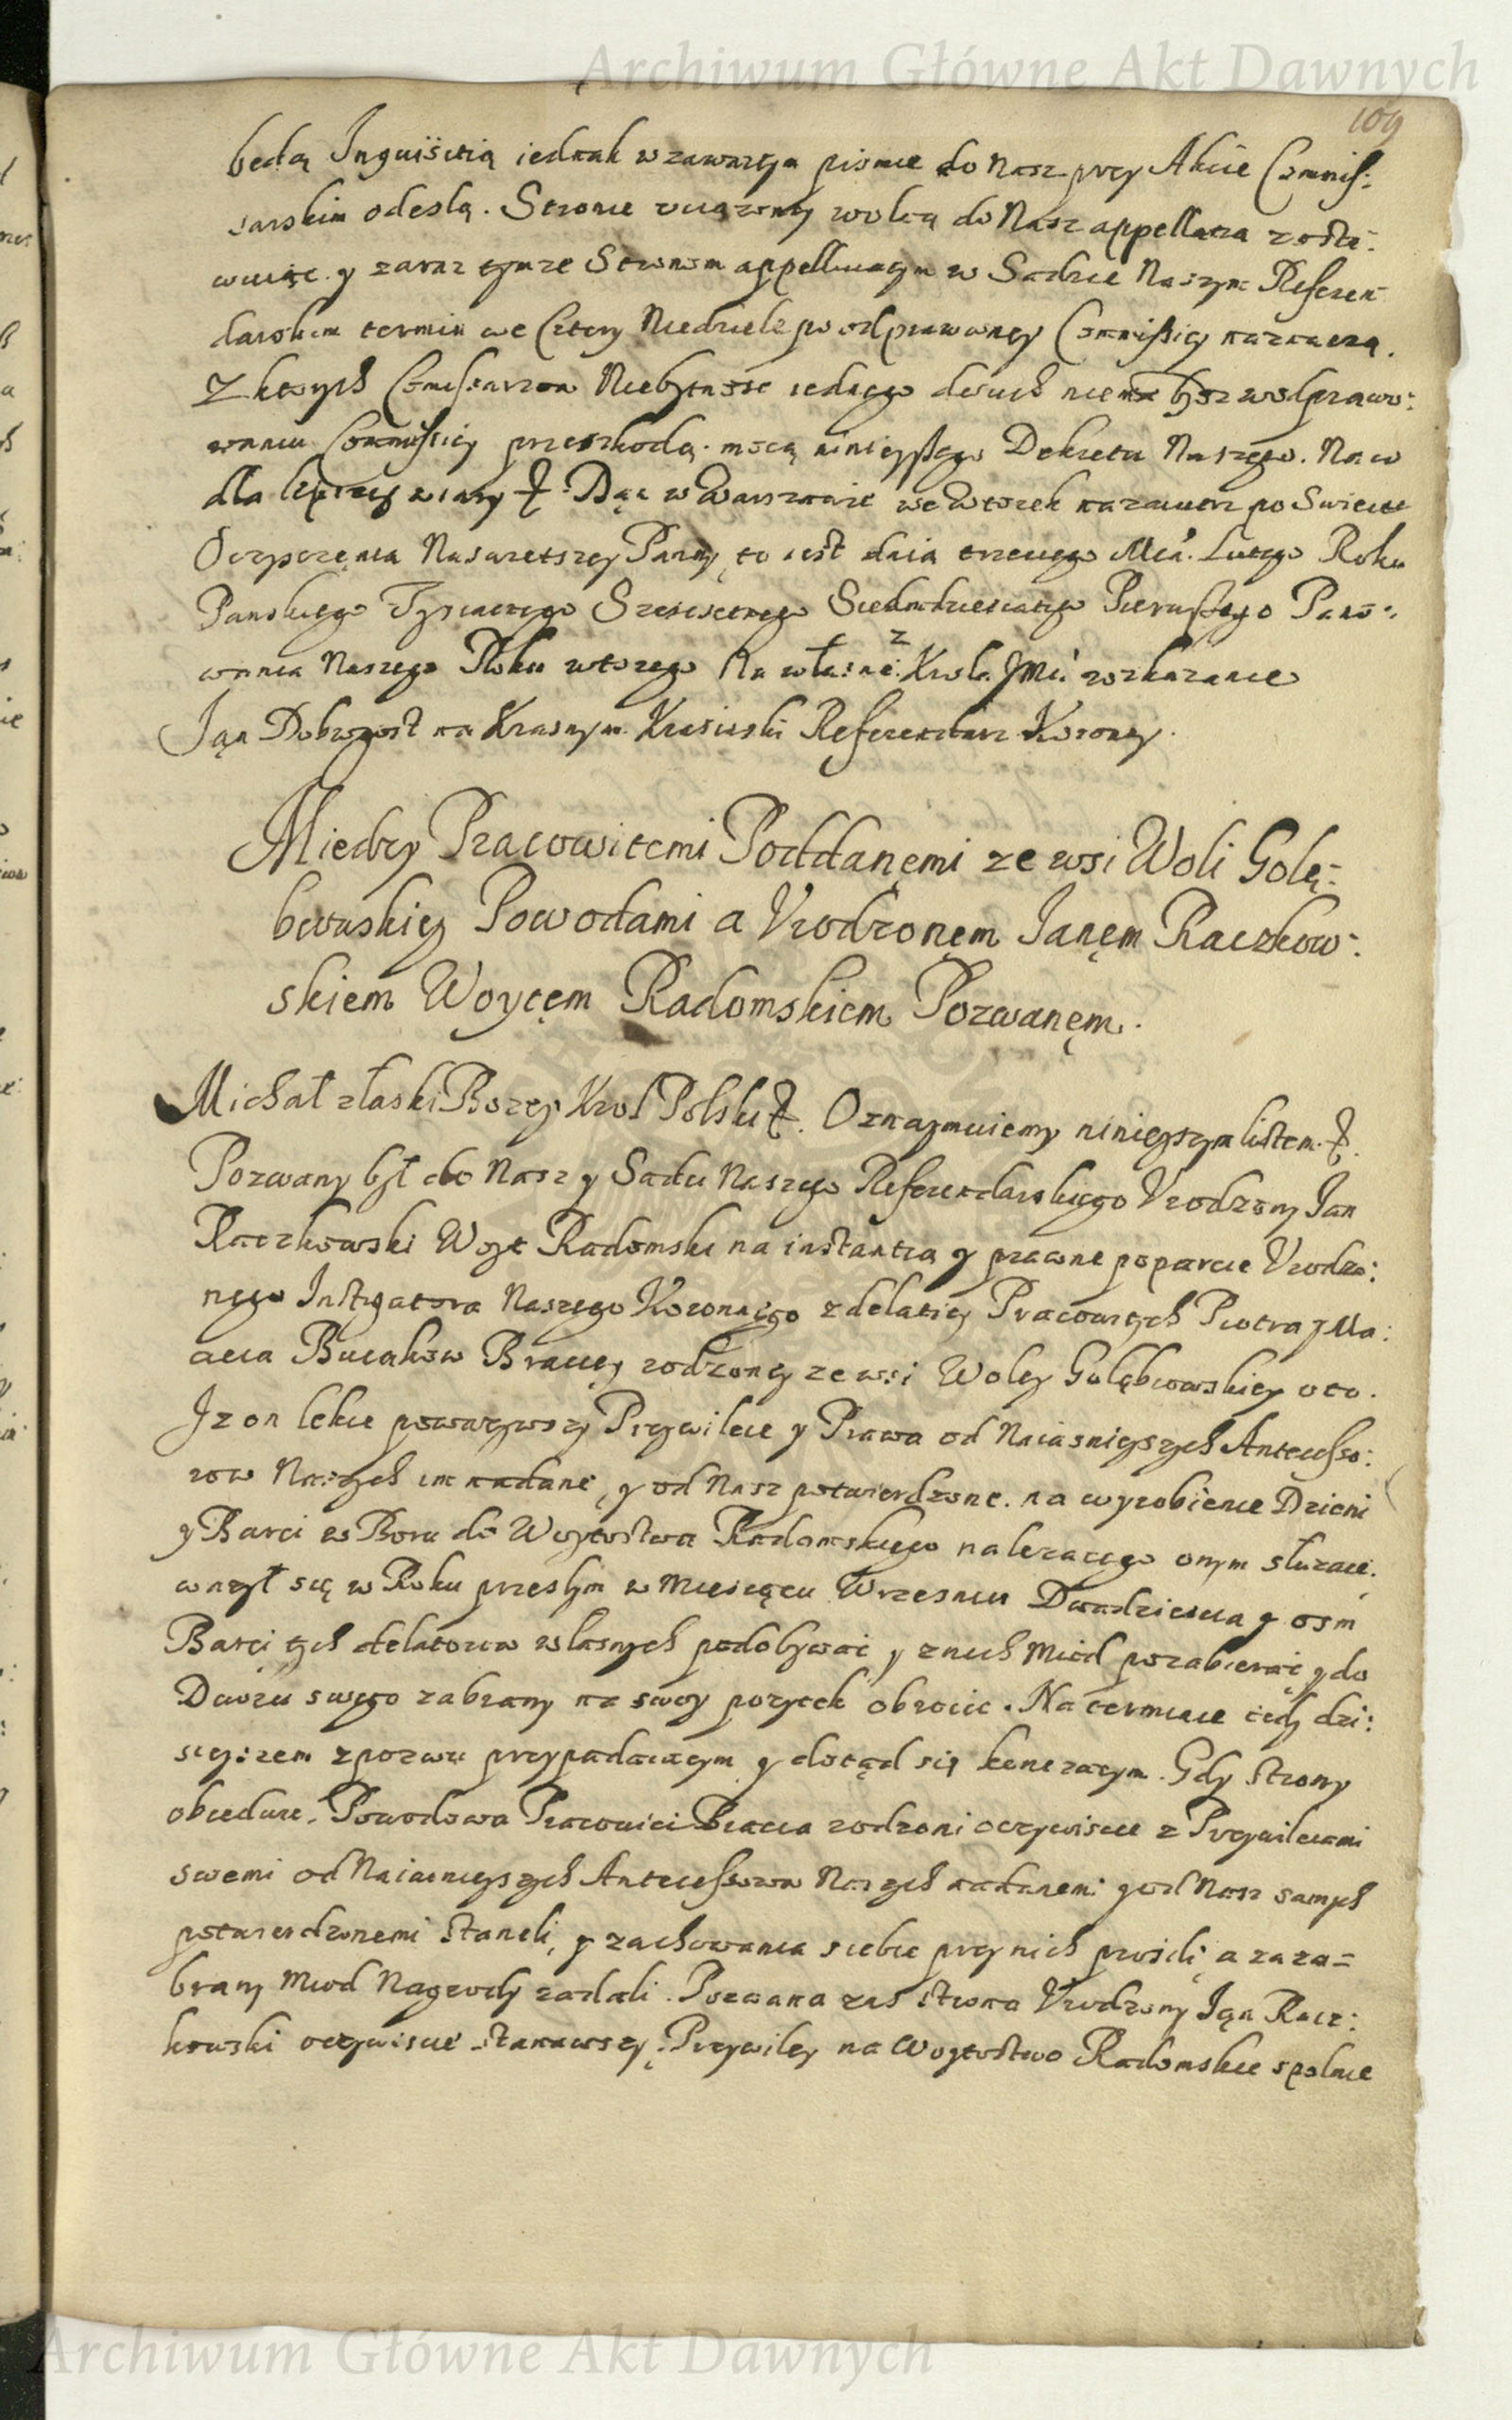 Archiwum Główne Akt Dawnych
109
będą Inquisitią iednak w zawartym pismie do Nasz przy Akcie Commiſ:
sarskim odeslą. Stronie uciązoney wolną do Nasz appellatia zosta:
wuiąc y zaraz tymze Stronom appelluiącym w Sadzie Naszym Referen
darskim termin we Cztery Niedziele po odprawioney Commissiey naznaczą.
Z ktorych Comissarzow Niebytnosc iednego dwuch niema bydz w odprawo:
waniu Commissiey przeszkodą. mocą ninieyszego Dekretu Naszego. Na co
dla lepszey wiary &. Dąn w Warszawie we Wtorek nazaiutrz po Swiecie
Oczysczęnia Naswietszey Panny, to iest dnia trzeciego Mcá. Lutego Roku
Panskiego Tysiącnego Szescsetnego Siedmdziesiątego Pierwszego Pano:
wania Naszego Roku wtorego Na własne Krola JMci rozkazanie
Ján Dobrogost na Krasnym Krasiński Referendarz Koronny.
Miedzy Pracowitemi Poddanęmi ze wsi Woli Golę:
bowskiey Powodami a Vrodzonęm Janęm Raczkow:
skiem Woytęm Radomskiem Pozwanęm.
Michał z łaski Bozey Krol Polski &. Oznaymuiemy ninieyszym listem. &.
Pozwany był do Nasz y Sadu Naszego Referendarskiego Vrodzony Jan
Raczkowski Woyt Radomski na instantią y prawne poparcie Vrodzo:
nęgo Instigatora Naszego Koronnęgo z delatiey Pracowitych Piotra y Ma:
cieia Buiakow Braciey rodzoney ze wsi Woley Golębiowskiey oto.
Jz on lekce powazywszy Przywileie y Prawa od Naiasnieyszych Antecesso:
row Naszych im nadane, y od Nasz potwierdzone. na wyrobienie Dzieni
y Barci w Boru do Woytostwa Radomskiego nalezącego onym słuzące.
wazył się w Roku przeszłym w Miesiącu Wrzesniu Dwadziescia y osm
Barci tych delatorow własnych podobywać y z nich Miod pozabierać y do
Dworu swego zabrany na swoy pozytek obrocić. Na terminie tedy dzi:
sieyszem z pozwu przypadaiącym y dotąd się konczącym. Gdy strony
obiedwie. Powodowa Pracowici Bracia rodzoni oczywiscie z Przywileiami
swemi od Naiasnieyszych Antecessorow Naszych nadanemi y od Nasz samych
potwierdzonemi staneli, y zachowania siebie przy nich prosili, a za za=
brany Miod Nagrody ządali. Pozwana zas strona Vrodzony Ján Racz:
kowski oczywiscie stanawszy. Przywiley na Woytostwo Radomskie spolnie
Archiwum Główne Akt Dawnych